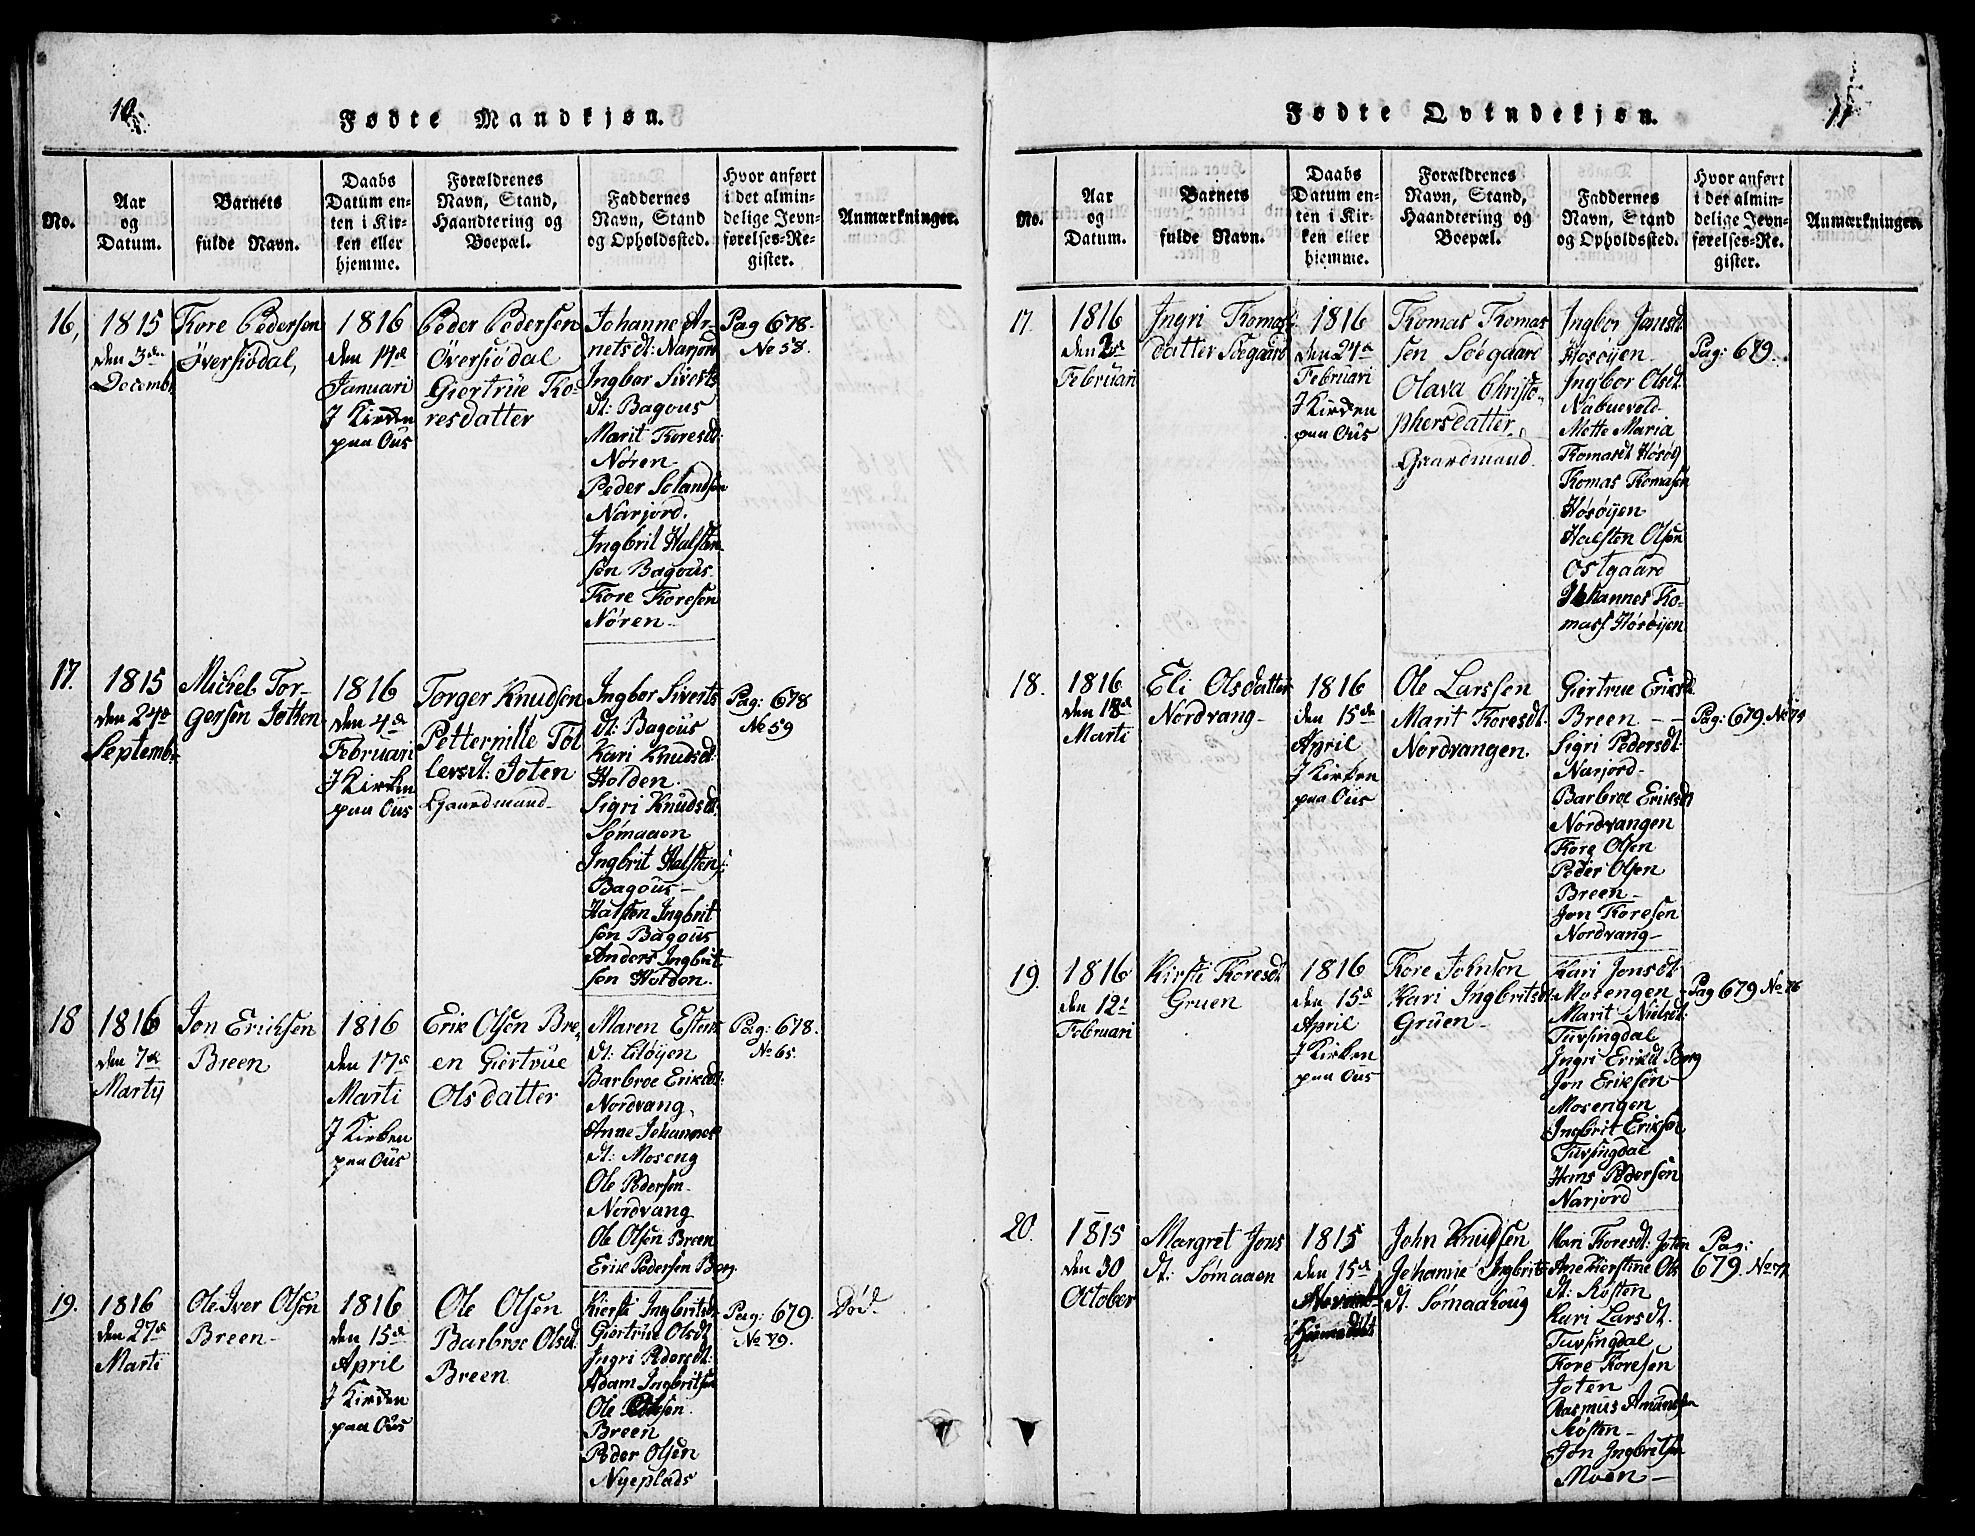 10.
Fødte Mandkjøn.
No.
Aar
og
Datum.
Barnets
fulde Navn.
Daabs
Datum en-
ten i Kir-
ken eller
hjemme.
Forældrenes
Navn, Stand,
Haandtering og
Boepæl.
Faddernes
Navn, Stand
og Opholdssted.
Hvor anført
i det almin-
delige Jevn-
førelses-Re-
gister.
Anmærkninger.
16,
1815
den 3de
Decemb:
Tore Pedersen
Øversiødal,
1816
den 14de
Januari
I Kirken
paa Ous
Peder Pedersen
Øversiødal
Giertrüe To-
resdatter
Johanne Ar-
netsdt: Narjord
Ingbor Siverts
dt: Bagous
Marit Toresdt:
Nøren
Peder Solandsen
Narjord.
Ingbrit Halsten
søn Bagous
Tore Toresen
Nøren
Pag 678.
No 58.
17.
1815
den 24de
Septemb:
Michel Tor-
gersen Joten
1816
den 4de
Februari
I Kirken
paa Ous
Torger Knudsen
Petternille Tol
levsdt: Joten
Gaardmand
Ingbor Siverts
dt: Bagous
Kari Knudsdt:
Holden
Sigri Knudsdt:
Sømaaen
Ingbrit Halsten
Bagous
Halsten Ingbrit
søn Bagous
Anders Ingbrit
sen Holden.
Pag: 678
No 59
18
1816
den 7de
Martij
Jon Ericksen
Breen
1816
den 17de
Marti
I Kirken
paa Ous
Erik Olsen Bre-
en Giertrüe
Olsdatter
Maren Estens
dt: Liløyen
Barbroe Eriksdt:
Nordvang,
Anne Johannes
dt: Moseng
Ole Pedersen
Nordvang
Ole Olsen Breen
Erik Pedersen Berg
Pag: 678.
No 65.
19.
1816
den 27de
Marti
Ole Iver Olsen
Breen
1816
den 15de
April
I Kirken
paa Ous
Ole Olsen
Barbroe Olsdt.
Breen
Kiersti Ingbritsdt
Giertrüe Olsdt
Ingri Pedersdt:
Adam Ingbritsen
Ole Olsen
Breen
Peder Olsen
Nyeplads
Pag: 679.
No 79.
Død.
11
Fødte Qvindekjøn.
No.
Aar
og
Datum.
Barnets
fulde Navn.
Daabs
Datum en-
ten i Kir-
ken eller
hjemme.
Forældrenes
Navn, Stand,
Haandtering og
Boepæl.
Faddernes
Navn, Stand
og Opholdssted.
Hvor anført
i det almin-
delige Jevn-
førelses-Re-
gister.
Anmærkninger.
17.
1816
den 2de
Februari
Ingri Tomas
datter Søegaard
1816
den 24de
Februari
I Kirken
paa Ous
Tomas Tomas
sen Søegaard
Olava Christo-
phersdatter.
Gaardmand.
Ingbor Jonsdt
Høsøyen
Ingbor Olsdt
Nabuevold
Mette Maria
Tomasdt Høsøy
Tomas Tomasen
Høsøyen
Halsten Olsen
Ostgaard
Johannes To-
mass Høsøyen
Pag: 679.
18.
1816
den 18de
Marti
Eli Olsdatter
Nordvang
1816
den 15de
April
I Kirken
paa Ous
Ole Larssen
Marit Toresdt.
Nordvangen.
Giertrue Eriksdt
Breen
Sigri Pedersdt:
Narjord
Barbroe Eriksdt
Nordvangen
Tore Olsen
Peder Olsen
Breen
Jon Toresen
Nordvang
Pag: 679. No 74
19.
1816
den 12te
Februari
Kirsti Toresdt
Gruen
1816
den 15de
April
I Kirken
paa Ous
Tore Johnsen
Kari Ingbritsdt
Gruen
Kari Jonsdt:
Mosengen
Marit Nielsdt:
Tufsingdal
Ingri Eriksdt Berg
Jon Eriksen
Mosengen
Ingbrit Eriksen
Tufsingdal
Hans Pedersen
Narjord
Pag 679 No 76
20.
1815
den 30
October
Margret Jons
dt: Sømaaen
1815
den 15de
John Knudsen
Johanne Ingbrits
dt. Sømaahoug
Kari Toresdt: Joten
Ane Kierstine Ols
dt: Røsten
Kari Larsdt.
Tufsingdal
Tore Toresen
Joten
Rasmus Amundsen
Røsten
Jon Ingbritsen
Moen
Pag:
679. No 77